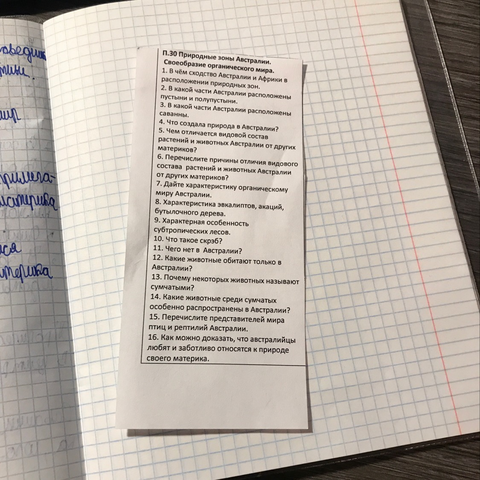 П.30 Природные зоны Австралии.
Своеобразие органического мира.
1. В чём сходство Австралии и Африки в
расположении природных зон.
2. В какой части Австралии расположены
пустыни и полупустыни.
3. В какой части Австралии расположены
саванны.
4. Что создала природа в Австралии?
5. Чем отличается видовой состав
растений и животных Австралии от других
материков?
6. Перечислите причины отличия видового
состава растений и животных Австралии
от других материков?
7. Дайте характеристику органическому
миру Австралии.
8. Характеристика эвкалиптов, акаций,
бутылочного дерева.
9. Характерная особенность
субтропических лесов.
10. Что такое скрэб?
11. Чего нет в Австралии?
12. Какие животные обитают только в
Австралии?
13. Почему некоторых животных называют
сумчатыми?
14. Какие животные среди сумчатых
особенно распространены в Австралии?
15. Перечислите представителей мира
птиц и рептилий Австралии.
16. Как можно доказать, что австралийцы
любят и заботливо относятся к природе
своего материка.